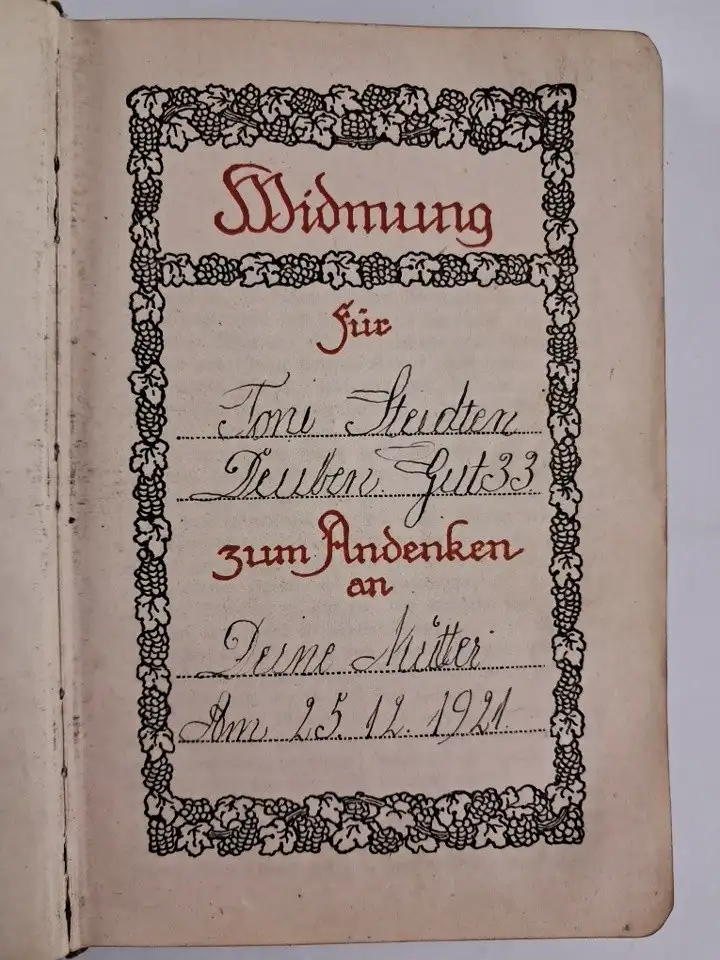 Widmung
Für
Toni Steidten
Deuben Gut 33
zum Andenken
an
Deine Mutter
Am 25. 12. 1921.